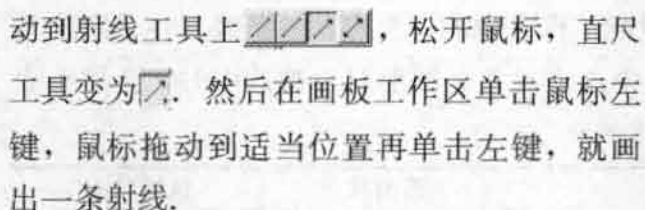 动到射线工具上，松开鼠标，直尺
工具变为. 然后在画板工作区单击鼠标左
键，鼠标拖动到适当位置再单击左键，就画
出一条射线.